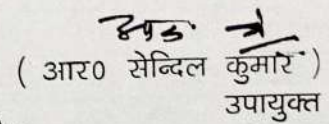 ( आर० सेन्दिल कुमार )
उपायुक्त